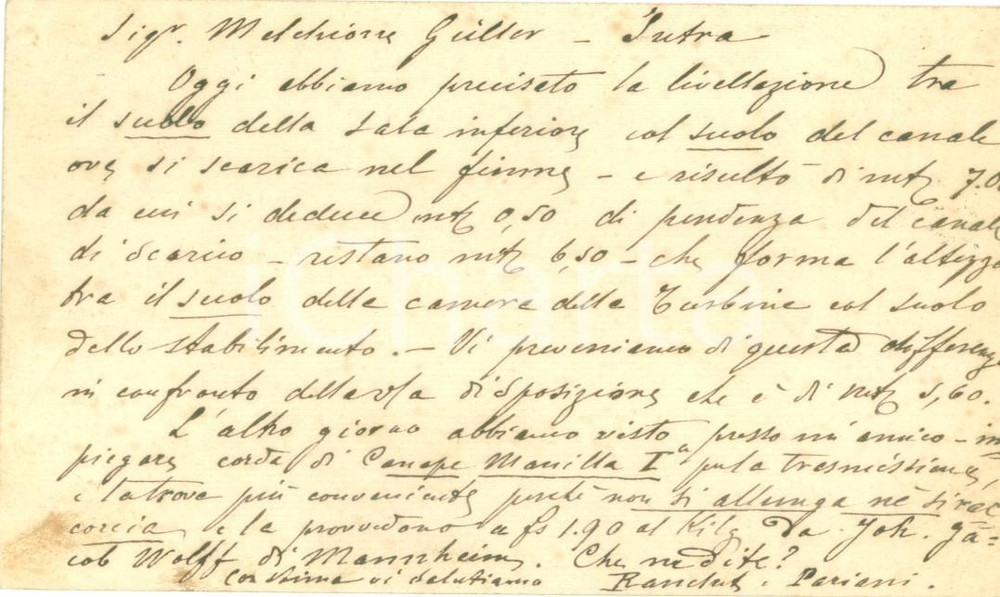 Sigr. Melchiorre Güller - Intra
Oggi abbiamo precisato la livellazione tra
il suolo della sala inferiore col suolo del canale
ove si scarica nel fiume - e risultò di mt 7.0
da cui si deduce mt 0,50 di pendenza del canale
di scarico - restano mt 6,50 - che forma l'altezza
tra il suolo della camera della Turbine col suolo
dello stabilimento. - Vi preveniamo di questa differenza
in confronto della vsa disposizione che è di mt 5,60.
L'altro giorno abbiamo visto presso un amico - im
piegare corda di Canape Manilla Ia per la trasmissione,
e la trova più conveniente perchè non si allunga nè si rac
corcia, e la provvedono a fs 1.90 al Kilo da Joh. Ja=
cob Wolff di Mannheim. Che ne dite?
Con stima vi salutiamo Pariani.
iCharta